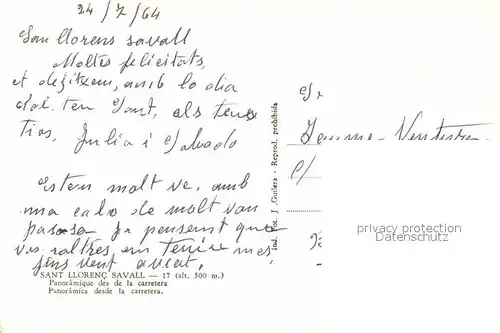 24/7/64
San llorens savall
Moltes felicitats,
et dezitxem, amb lo dia
del teu Sant, als teus
Tios. Julia i Salvado
Estem molt ve, amb
una calo de molt van
pero ja pensent que
vos altres en teniu mes
fins vent aviat.
SANT LLORENÇ SAVALL — 17 (alt. 500 m.)
Panoràmique des de la carretera
Panorámica desde la carretera.
Ind. Fot. J. Guilera - Reprod. prohibida
Sr
Jaume Ventura
C/
privacy protection
by AKPOOL GmbH